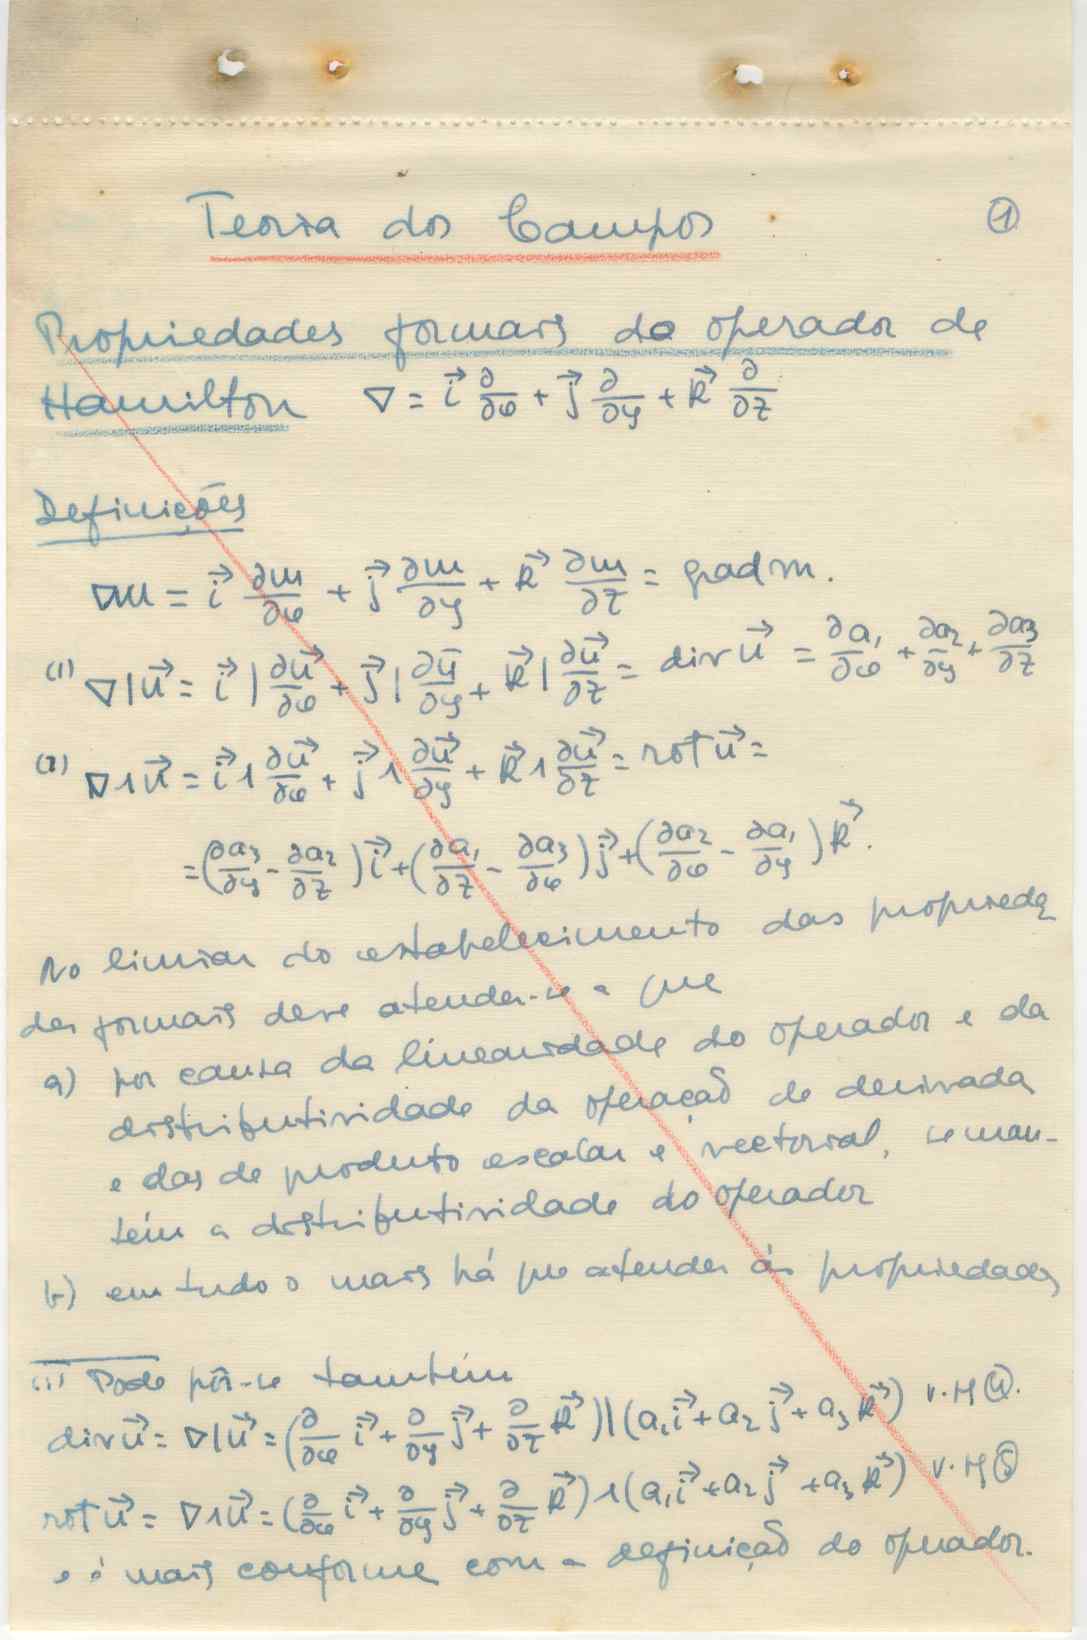 Teoria dos Campos ①
Propriedades formais do operador de
Hamilton ∇ = i⃗ ∂/∂x + j⃗ ∂/∂y + k⃗ ∂/∂z
Definições
∇m = i⃗ ∂m/∂x + j⃗ ∂m/∂y + k⃗ ∂m/∂z = grad m.
(1) ∇|u⃗ = i⃗ | ∂u⃗/∂x + j⃗ | ∂u⃗/∂y + k⃗ | ∂u⃗/∂z = div u⃗ = ∂a₁/∂x + ∂a₂/∂y + ∂a₃/∂z
(2) ∇∧u⃗ = i⃗ ∧ ∂u⃗/∂x + j⃗ ∧ ∂u⃗/∂y + k⃗ ∧ ∂u⃗/∂z = rot u⃗ =
= (∂a₃/∂y - ∂a₂/∂z) i⃗ + (∂a₁/∂z - ∂a₃/∂x) j⃗ + (∂a₂/∂x - ∂a₁/∂y) k⃗.
No limiar do estabelecimento das proprieda
des formais deve atender-se a que
a) por causa da linearidade do operador e da
distributividade da operação de derivada
e das de produto escalar e vectorial, se man-
tém a distributividade do operador
b) em tudo o mais há que atender às propriedades
(1) Pode pôr-se também
div u⃗ = ∇|u⃗ = (∂/∂x i⃗ + ∂/∂y j⃗ + ∂/∂z k⃗) | (a₁i⃗ + a₂j⃗ + a₃k⃗) v. pg
rot u⃗ = ∇∧u⃗ = (∂/∂x i⃗ + ∂/∂y j⃗ + ∂/∂z k⃗) ∧ (a₁i⃗ + a₂j⃗ + a₃k⃗) v. pg ⑤
e é mais conforme com a definição do operador.